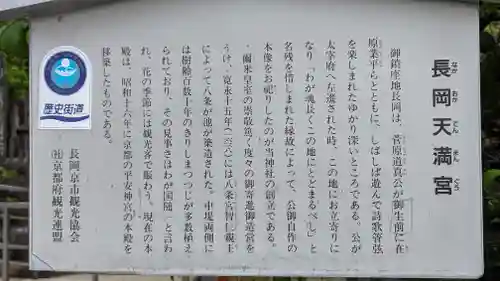 長岡天満宮
なが おか てん まん ぐう
御鎮座地長岡は、菅原道真公が御生前に在
原業平らとともに、しばしば遊んで詩歌管弦
を楽しまれたゆかり深いところである。公が
太宰府へ左遷された時、この地にお立寄りに
なり「わが魂長くこの地にとどまるべし」と
名残を惜しまれた縁故によって、公御自作の
木像をお祀りしたのが当神社の創立である。
爾来皇室の崇敬篤く度々の御寄進御造営を
うけ、寛永十五年(一六三八)には八条宮智仁親王
によって八条が池が築造された。中堤両側に
は樹齢百数十年のきりしまつつじが多数植え
られており、その見事さはわが国随一と言わ
れ、花の季節には観光客で賑わう。現在の本
殿は、昭和十六年に京都の平安神宮の本殿を
移築したものである。
長岡京市観光協会
(社)京都府観光連盟
歴史街道